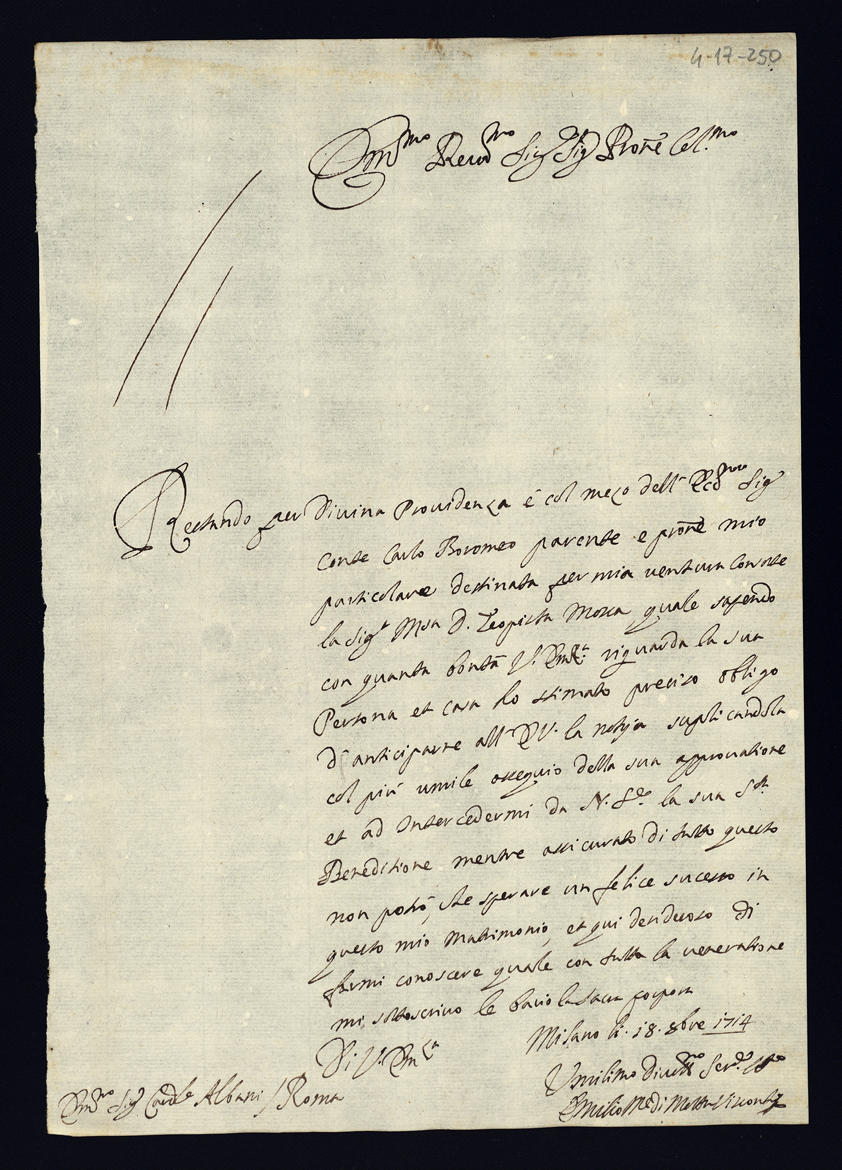 4-17-250
Em.mo Reud.mo Sig.r Sig.r Prone Col.mo
Restando per Divina Providenza è col mezo dell' Ecc.mo Sig.r
Conte Carlo Boromeo parente e prone mio
particolare destinata per mia ventura Consorte
la Sig.ra Msa D. Teopista Mossa quale sapendo
con quanta bontà V. Em.za riguarda la sua
Persona et Casa ho stimato preciso obligo
d'anticiparne all' E.V. la notizia suplicandola
col più umile ossequio della sua approuatione
et ad Intercedermi da N. S.re la sua S.ta
Beneditione mentre assicurato di tutto questo
non potrò, che sperare un felice sucesso in
questo mio Matrimonio, et qui desideroso di
farmi conoscere quale con tutta la veneratione
mi sottoscriuo le bacio la sacra porpora
Di V. Em.za
Milano li. 18. 8bre 1714
Umilimo Diuot.mo Ser.re
Emilio Visconti
Em.mo Sig.r Cardle Albani / Roma